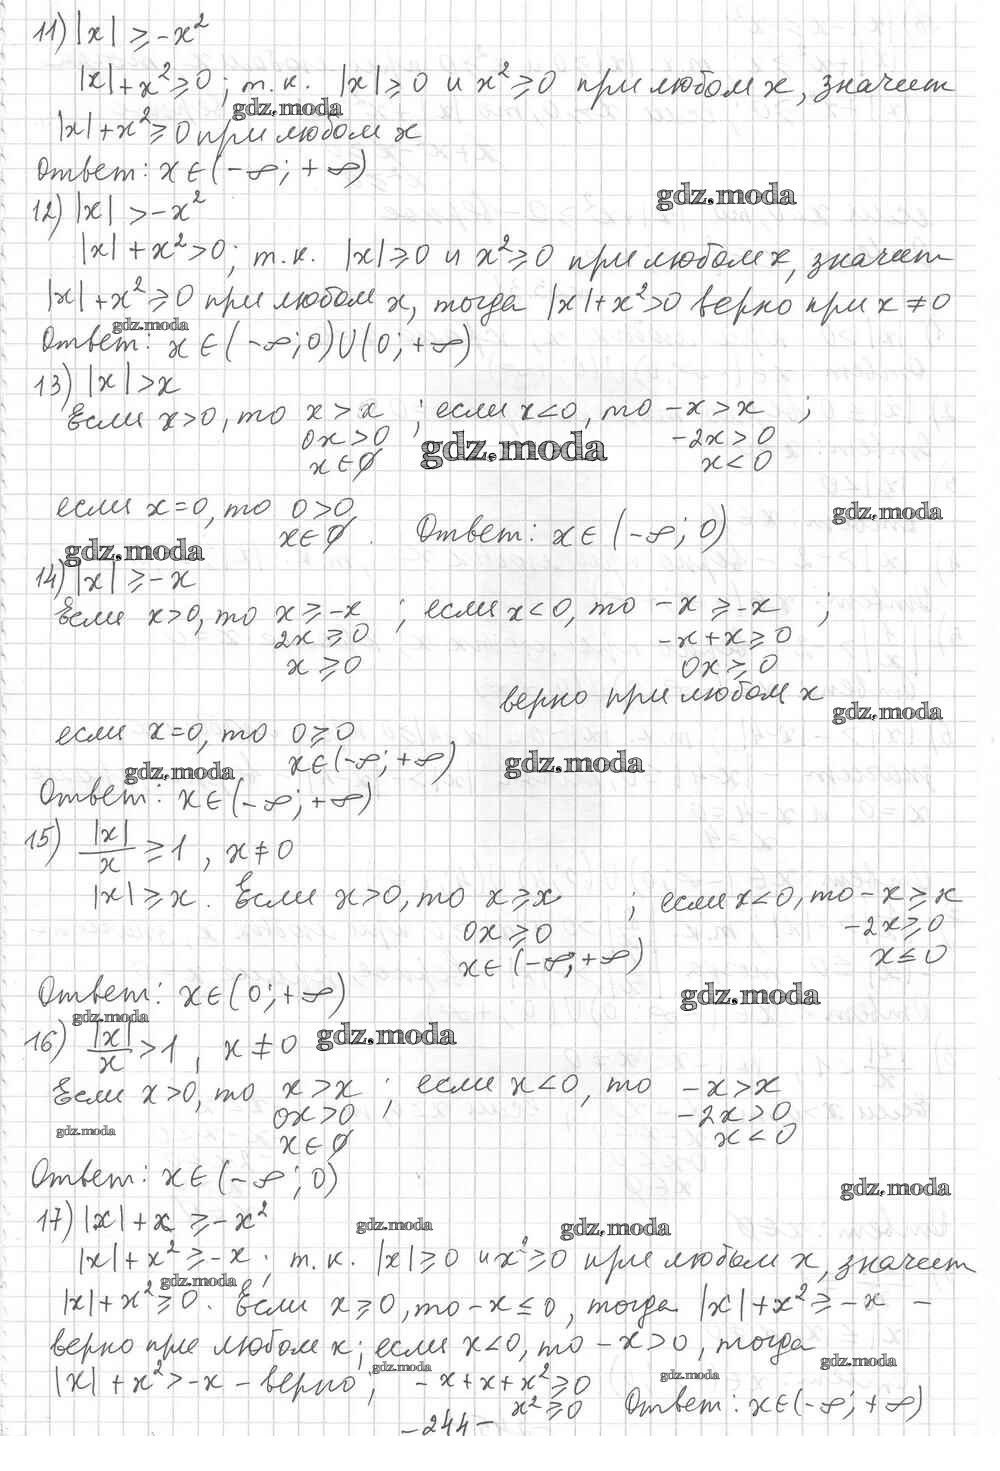 11) |x| ≥ -x²
|x| + x² ≥ 0; т.к. |x| ≥ 0 и x² ≥ 0 при любом x, значит
gdz.moda
|x| + x² ≥ 0 при любом x
Ответ: x ∈ (-∞; +∞)
gdz.moda
12) |x| > -x²
|x| + x² > 0; т.к. |x| ≥ 0 и x² ≥ 0 при любом x, значит
|x| + x² ≥ 0 при любом x, тогда |x| + x² > 0 верно при x ≠ 0
gdz.moda
Ответ: x ∈ (-∞; 0) ∪ (0; +∞)
13) |x| > x
Если x > 0, то x > x ; если x < 0, то -x > x ;
0x > 0 gdz.moda -2x > 0
x ∈ ∅ x < 0
если x = 0, то 0 > 0 gdz.moda
x ∈ ∅. Ответ: x ∈ (-∞; 0)
gdz.moda
14) |x| ≥ -x
Если x > 0, то x ≥ -x ; если x < 0, то -x ≥ -x ;
2x ≥ 0 -x + x ≥ 0
x ≥ 0 0x ≥ 0
верно при любом x
gdz.moda
если x = 0, то 0 ≥ 0
gdz.moda x ∈ (-∞; +∞) gdz.moda
Ответ: x ∈ (-∞; +∞)
15) |x|/x ≥ 1, x ≠ 0
|x| ≥ x. Если x > 0, то x ≥ x ; если x < 0, то -x ≥ x
0x ≥ 0 -2x ≥ 0
x ∈ (-∞; +∞) x ≤ 0
Ответ: x ∈ (0; +∞) gdz.moda
gdz.moda
16) |x|/x > 1, x ≠ 0 gdz.moda
Если x > 0, то x > x ; если x < 0, то -x > x
0x > 0 -2x > 0
gdz.moda x ∈ ∅ x < 0
Ответ: x ∈ (-∞; 0) gdz.moda
17) |x| + x ≥ -x² gdz.moda gdz.moda
|x| + x² ≥ -x ; т.к. |x| ≥ 0 и x² ≥ 0 при любом x, значит
gdz.moda
|x| + x² ≥ 0. Если x ≥ 0, то -x ≤ 0, тогда |x| + x² ≥ -x –
верно при любом x; если x < 0, то -x > 0, тогда
gdz.moda gdz.moda gdz.moda
|x| + x² > -x – верно; -x + x + x² ≥ 0
x² ≥ 0 Ответ: x ∈ (-∞; +∞)
-244-